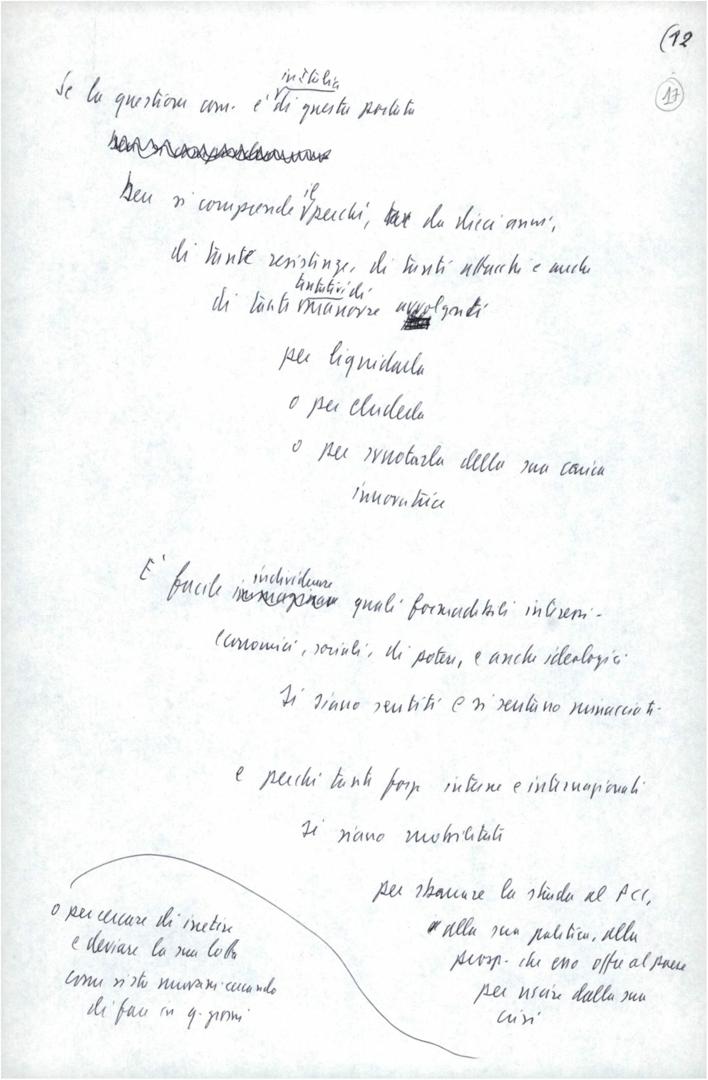 (12
17
in Italia
Se la questione com. è di questa portata
ben si comprende il perché, da dieci anni,
di tante resistenze, di tanti attacchi e anche
tentativi di
di tanti manovre avvolgenti
per liquidarla
o per eluderla
o per svuotarla della sua carica
innovatrice
individuare
E' facile immaginare quali formidabili interessi
economici, sociali, di potere, e anche ideologici
si siano sentiti e si sentano minacciati
e perché tante forze interne e internazionali
si siano mobilitate
per sbarrare la strada al PCI,
alla sua politica, alla
prosp. che esso offre al paese
per uscire dalla sua
crisi
o per cercare di
e deviare la sua lotta
come si sta cercando
di fare in q. giorni